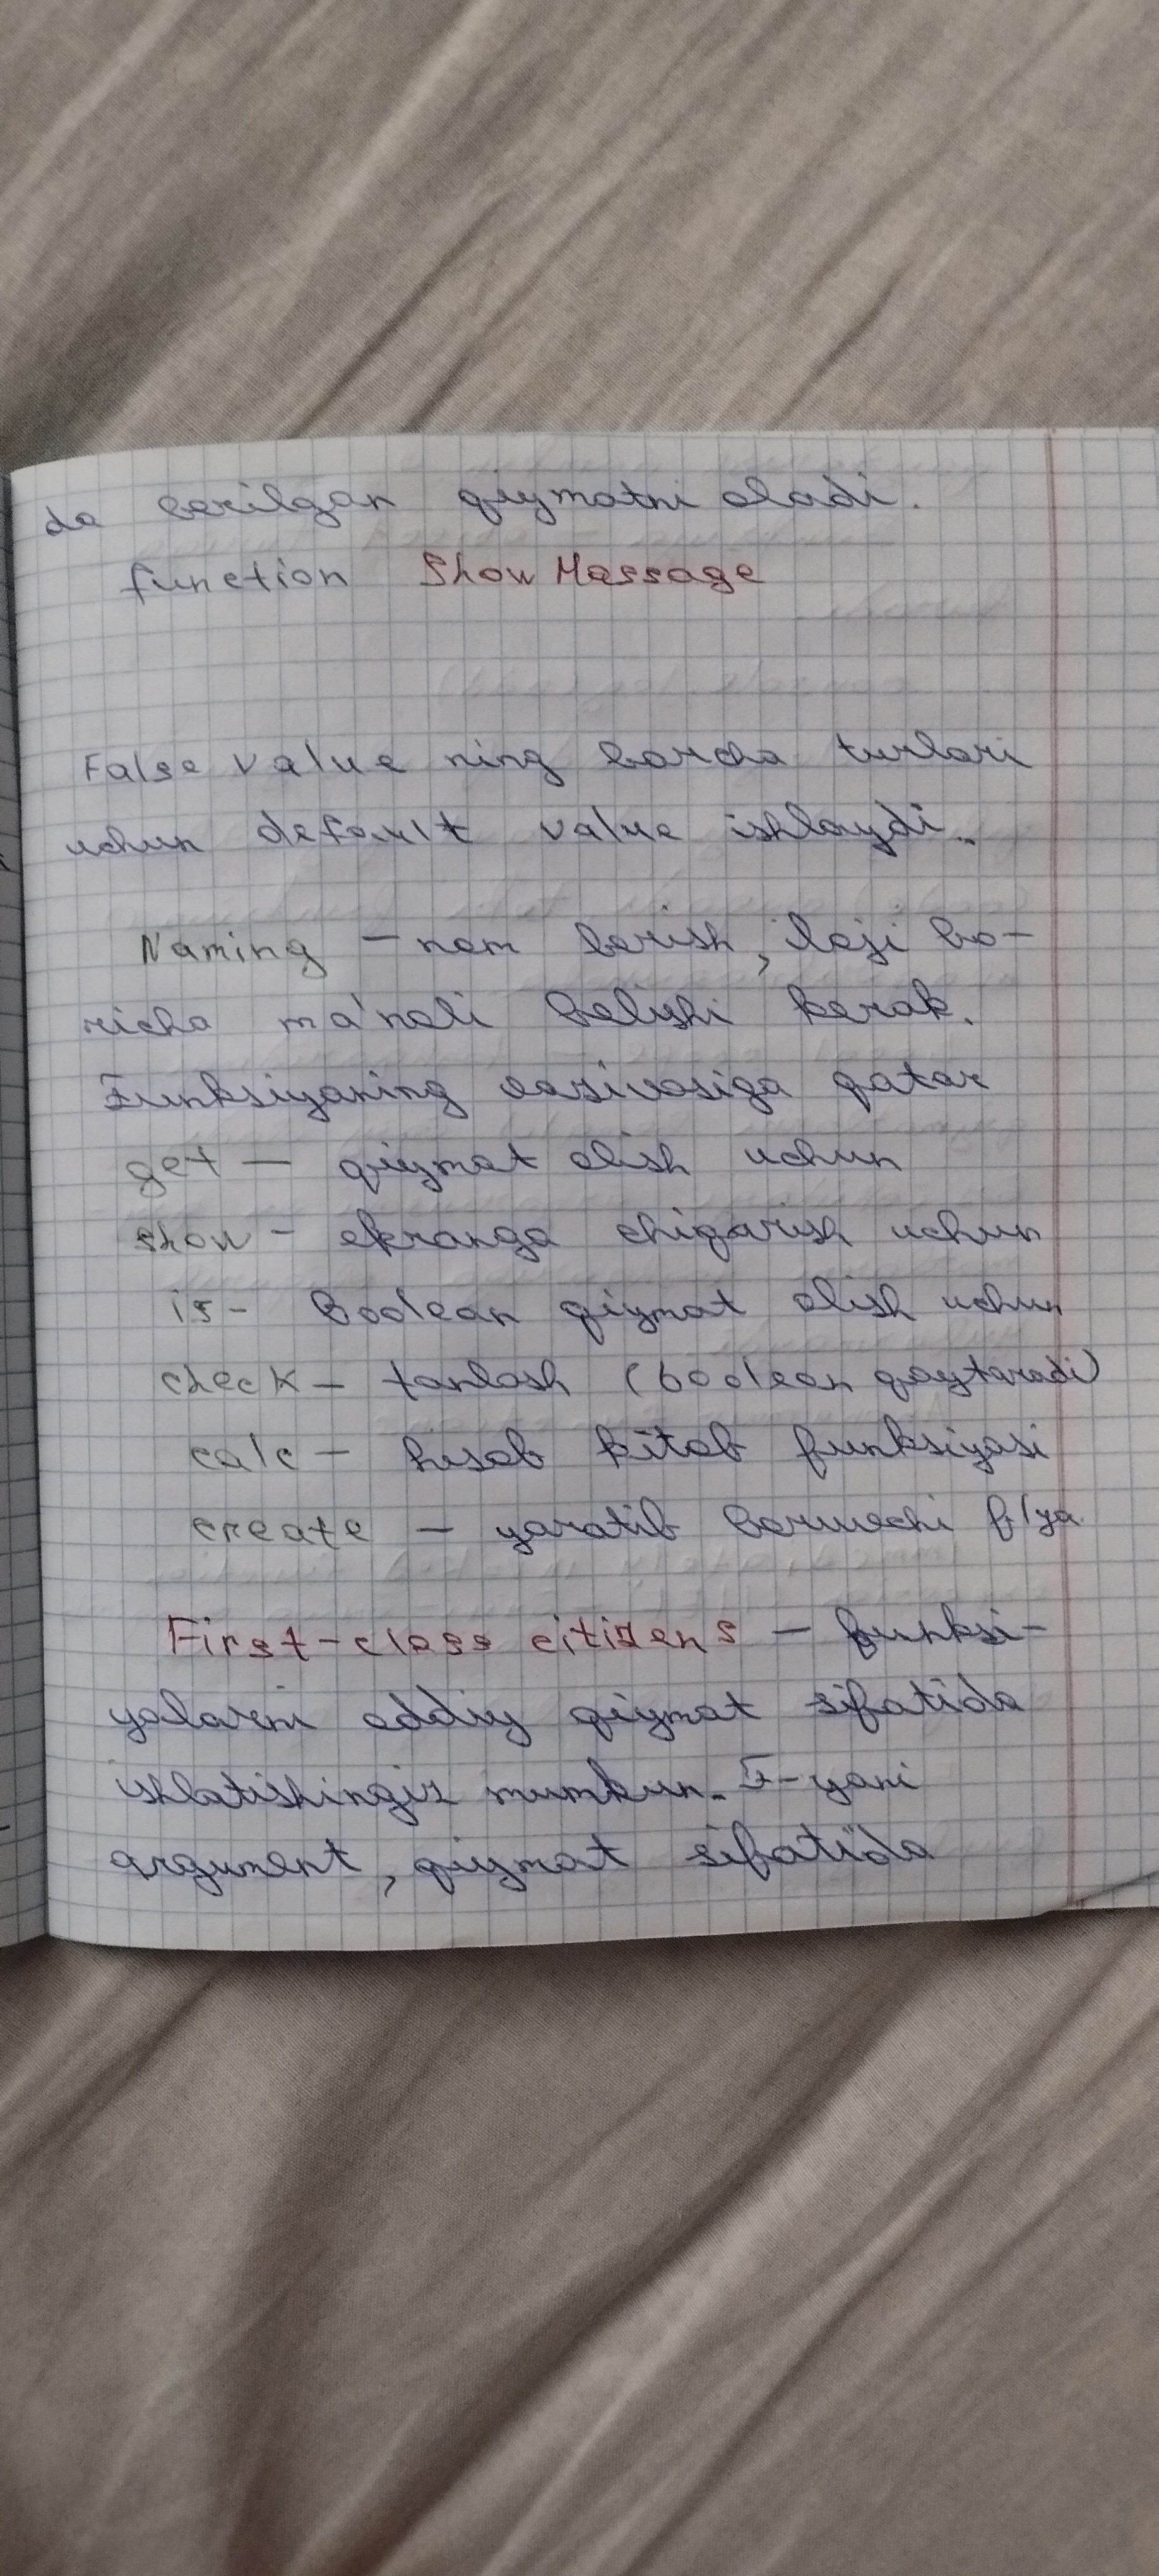 da berilgan qiymatni oladi.
function Show Massage
False value ning barcha turlari
uchun default value ishlaydi.
Naming - nom berish, iloji bo-
richa ma'noli belishi kerak.
Funksiyaning vazivasiga qatar
get - qiymat olish uchun
show - ekranga chiqarish uchun
is - Boolean qiymat olish uchun
check - tanlash (boolean qaytaradi)
calc - hisob kitob funksiyasi
create - yaratib beruvchi f/ya
First-class citizens - funksi-
yalarni oddiy qiymat sifatida
ishlatishingiz mumkun. F-yani
argument, qiymat sifatida